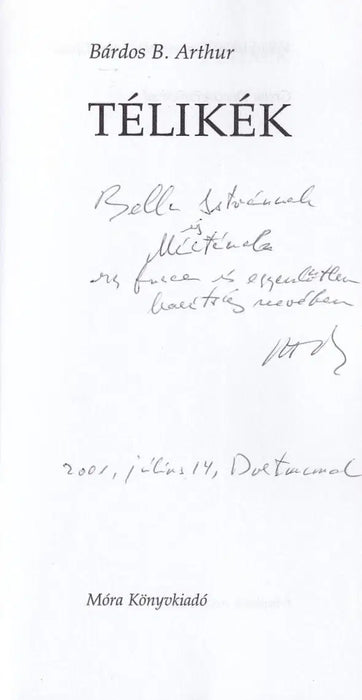 Bárdos B. Arthur
TÉLIKÉK
Bella Istvánnak
és
egy furcsa és egyenlőtlen
barátság nevében
2001, július 14, Dortmund
Móra Könyvkiadó